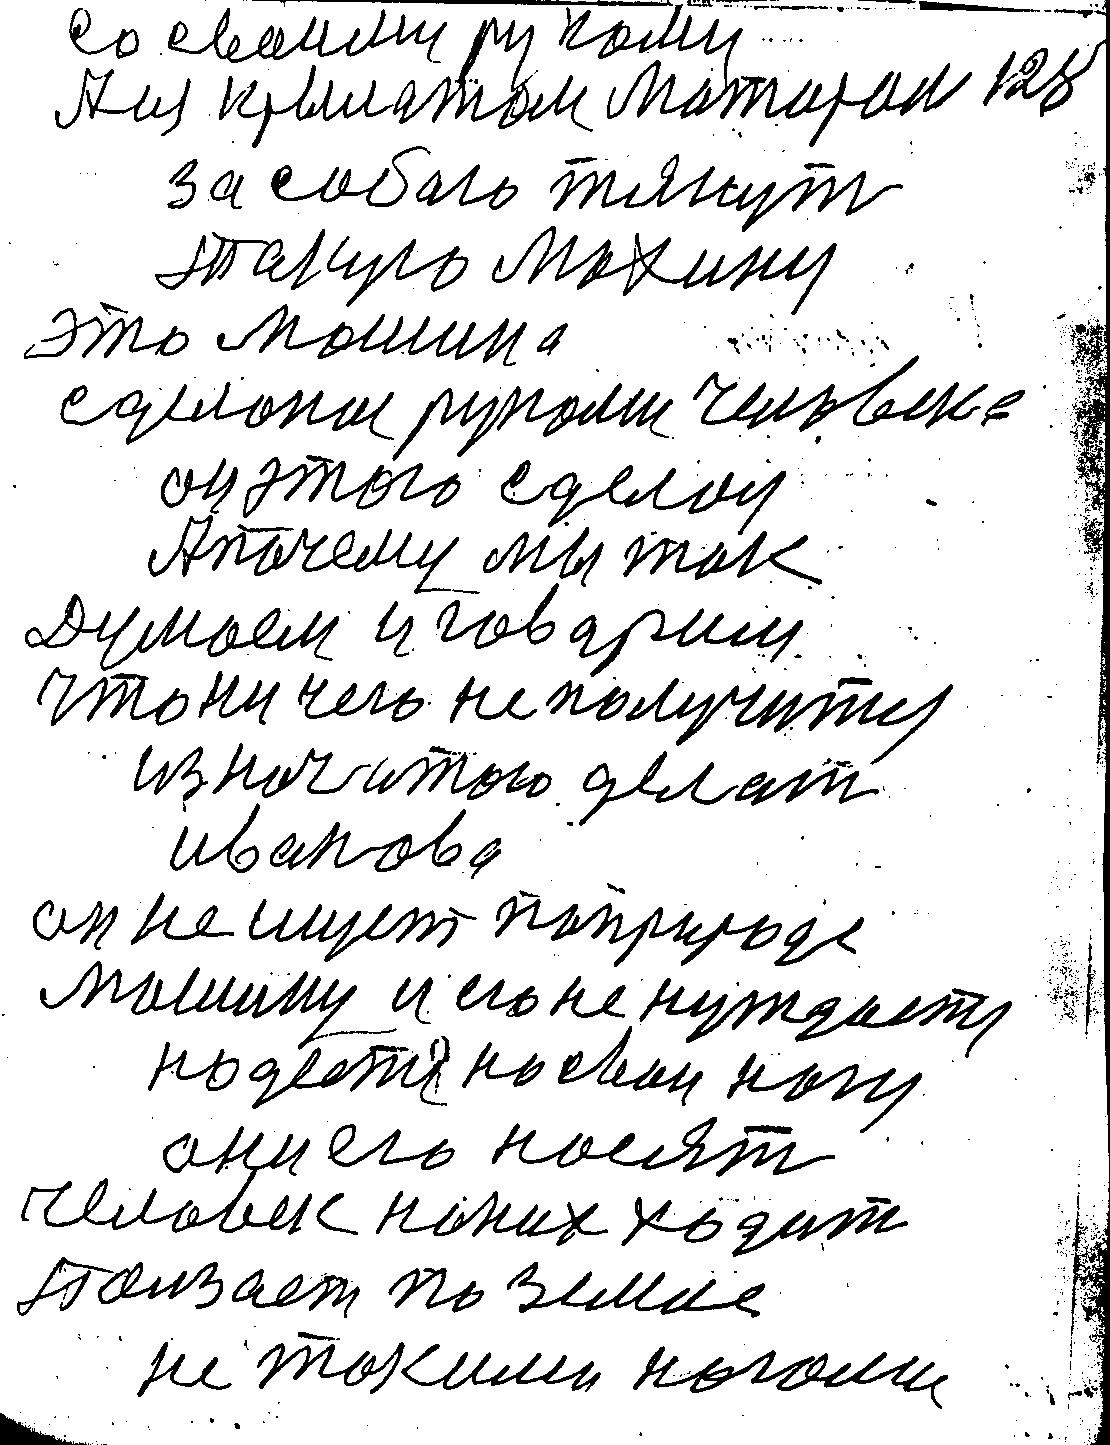 со своими рукоми
А их крылатом Матором 128
за собаю тянут
такую Махину
это Мошина
сделона рукоми Человека
он этого сделол
А почему мы ток
Думоем и говарим
Что ни чего не получитя
из ночитою делат
иванова
он не ищет поприроде
Мошину и его не нуждоетя
но дети на свои ноги
они его носят
Человек на них ходит
ползает по Земле
не токими ногоми